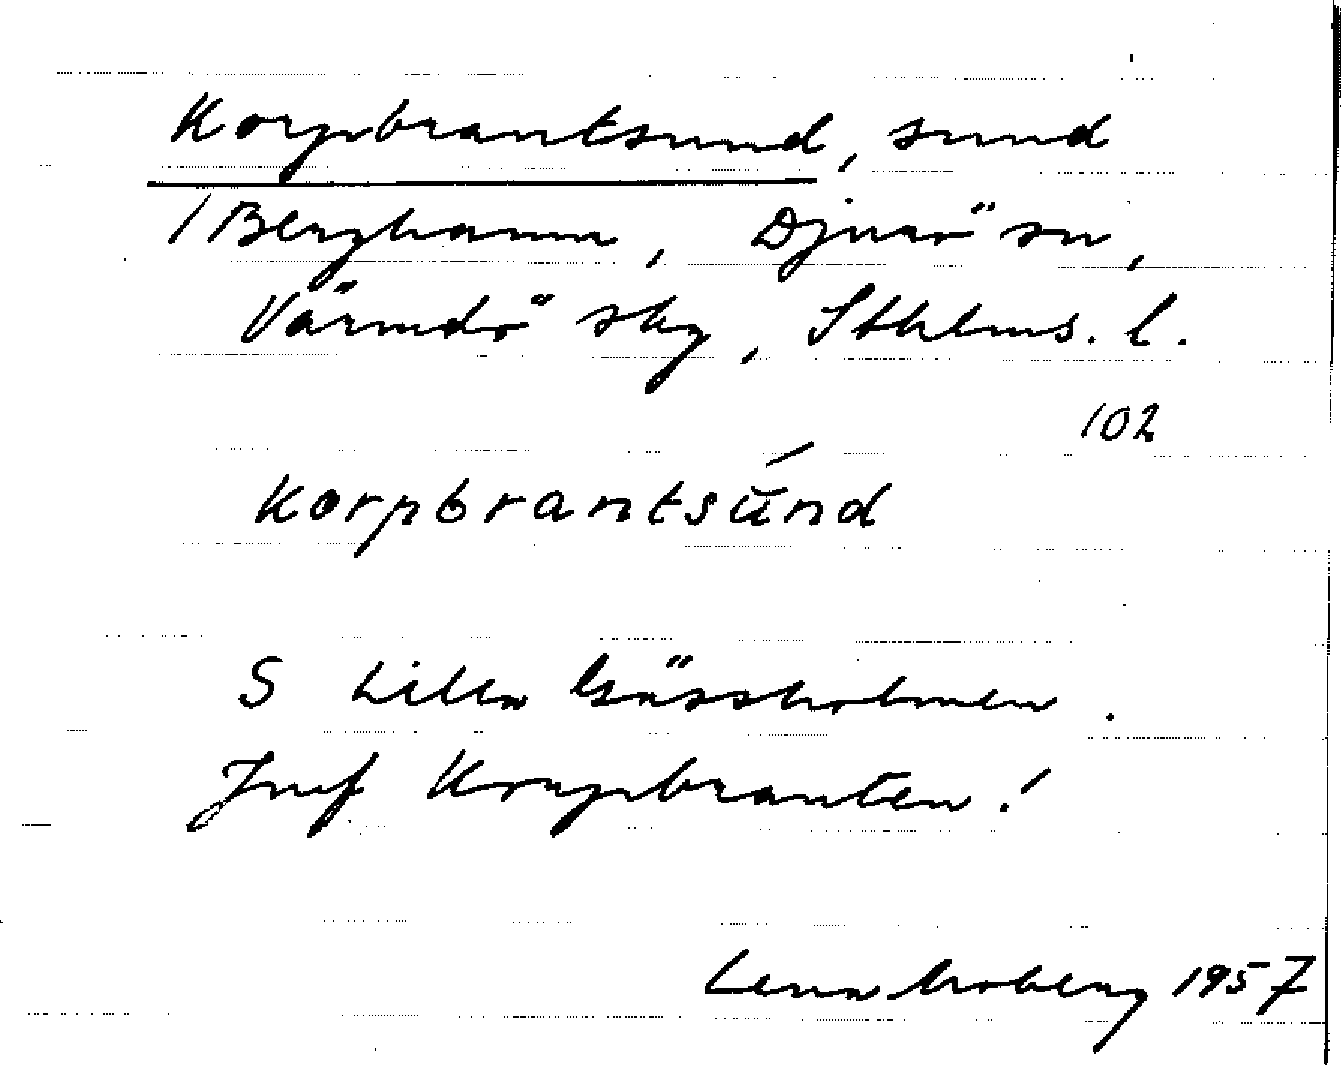 Korpbrantsund, sund
/ Berghamn, Djurö sn,
Värmdö sky, Sthlms. l.
102
korpbrantsúnd
S Lilla Gåssholmen.
Jmf Korpbranten!
Lena Moberg 1957